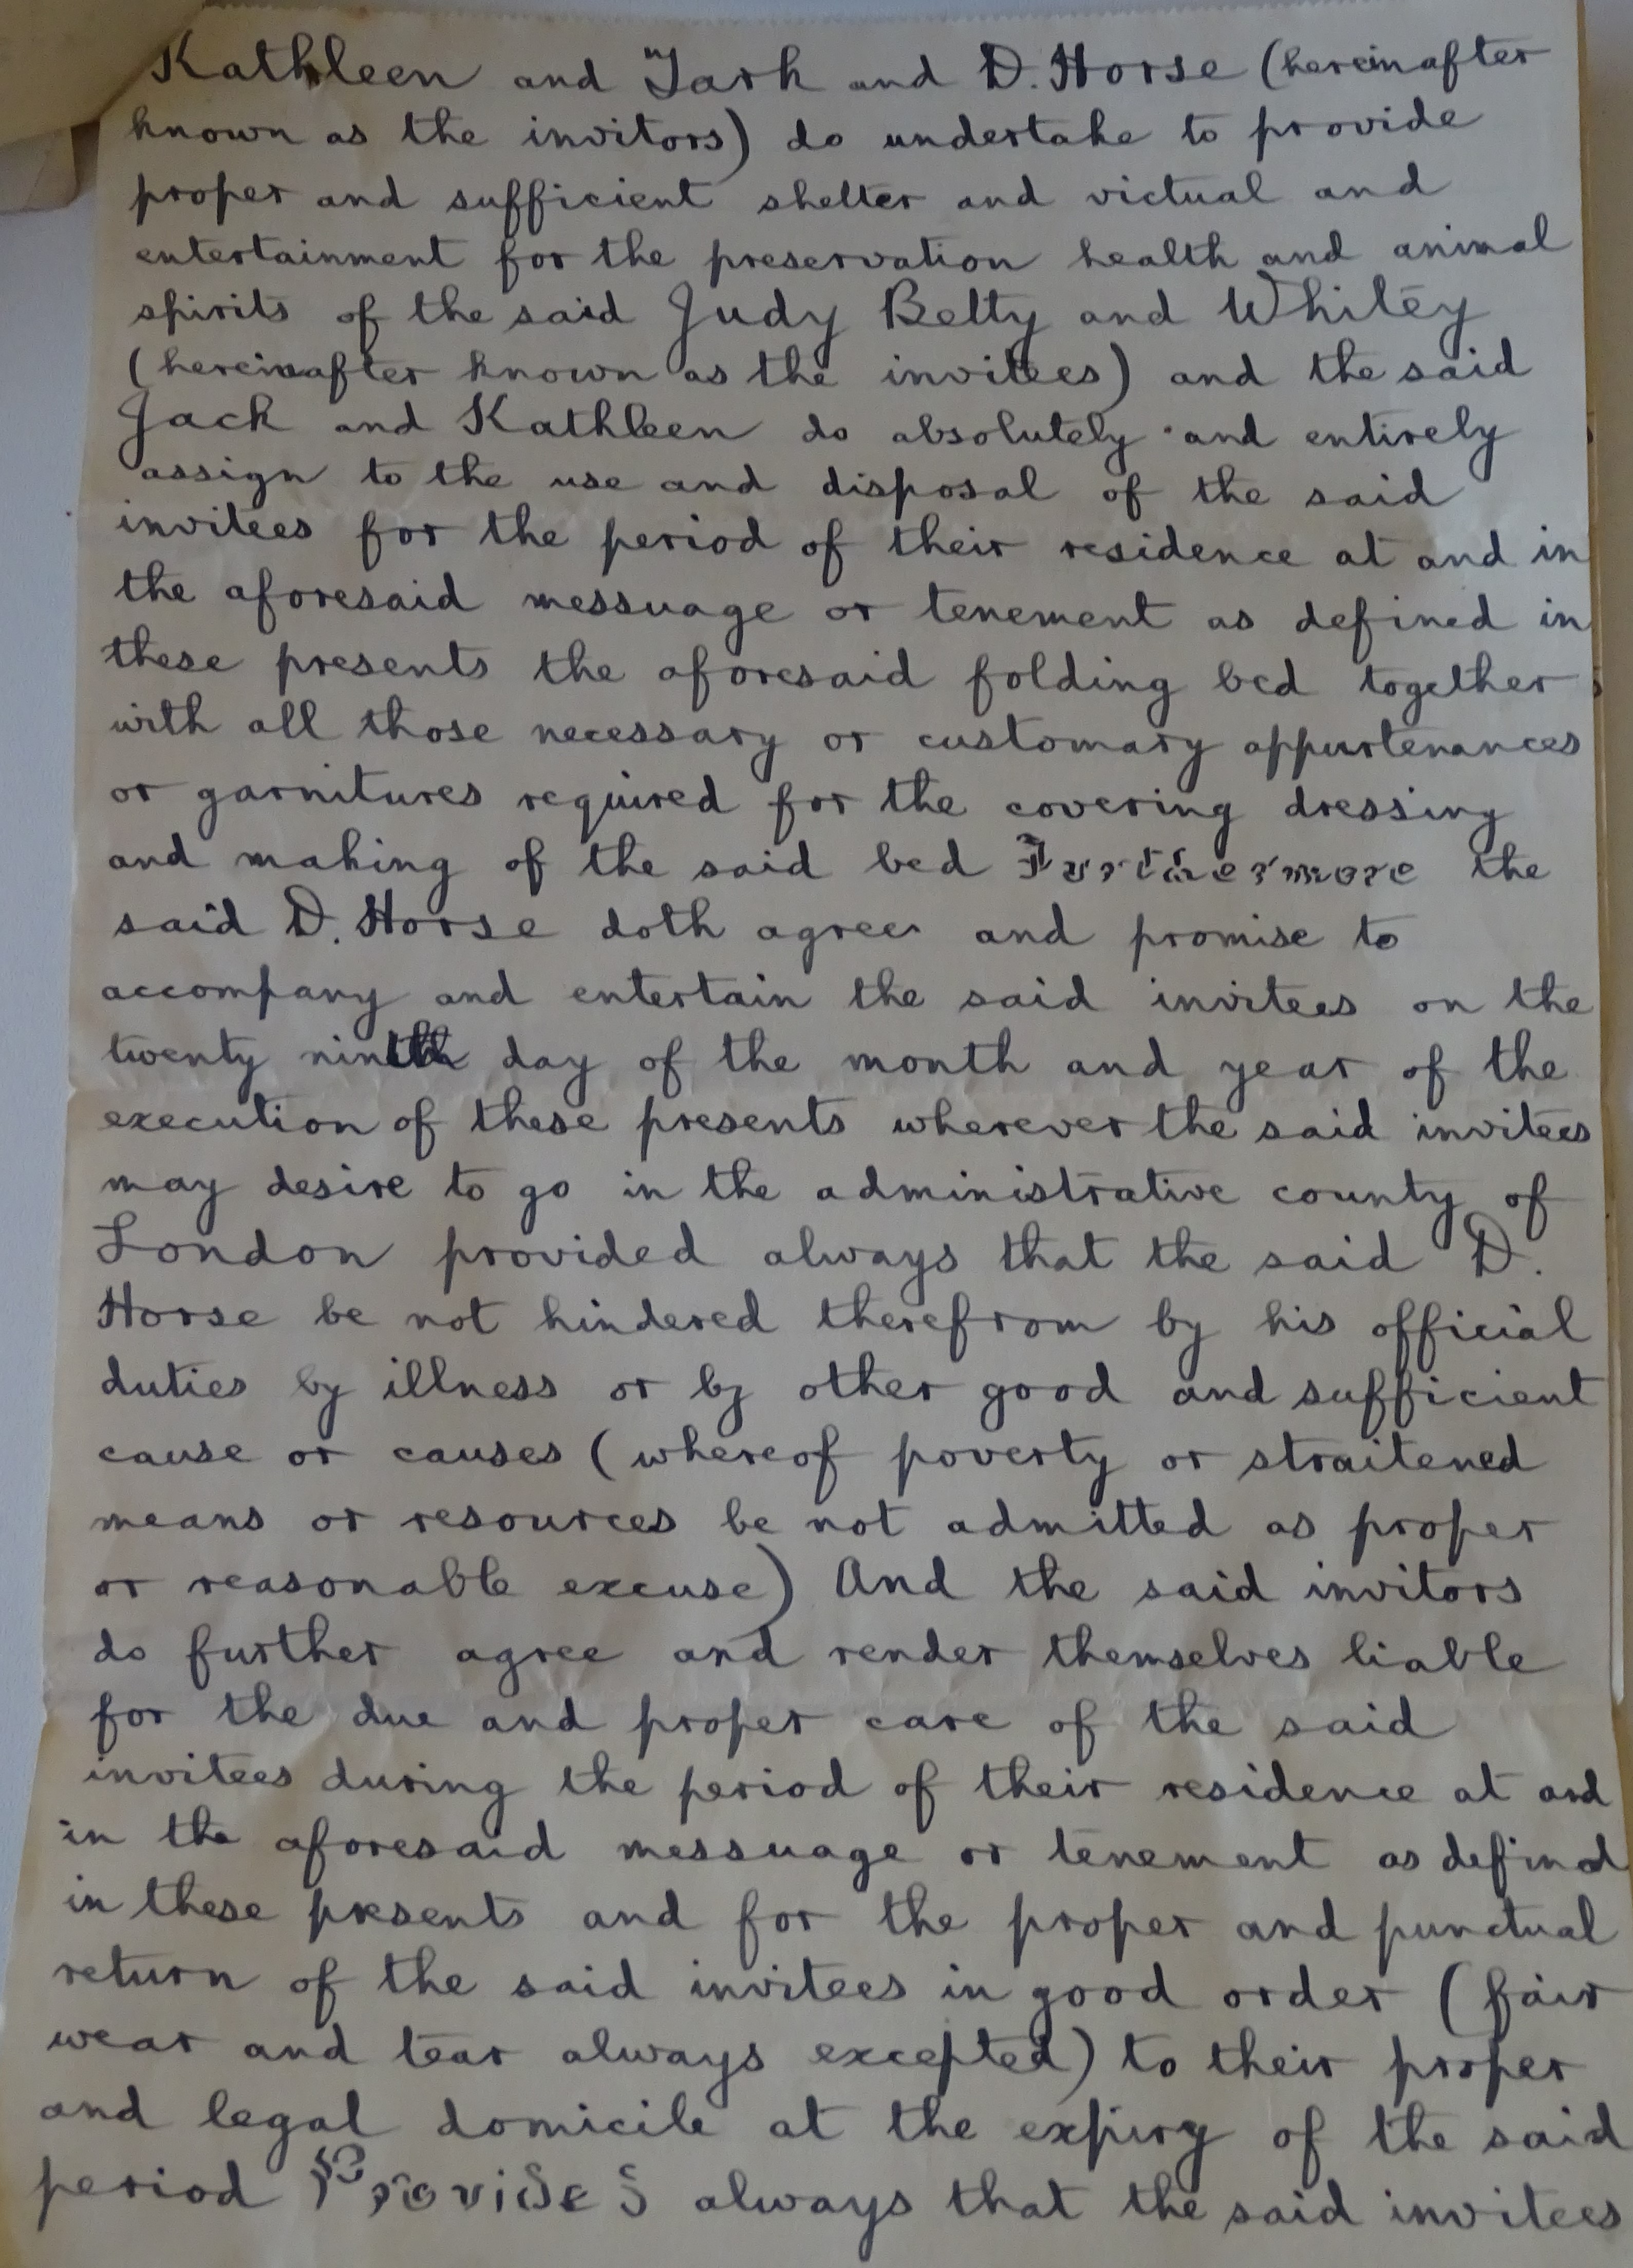 Kathleen and Jark and D. Horse (hereinafter
known as the invitors) do undertake to provide
proper and sufficient shelter and victual and
entertainment for the preservation health and animal
spirits of the said Judy Betty and Whitey
(hereinafter known as the invitees) and the said
Jack and Kathleen do absolutely and entirely
assign to the use and disposal of the said
invitees for the period of their residence at and in
the aforesaid messuage or tenement as defined in
these presents the aforesaid folding bed together
with all those necessary or customary appurtenances
or garnitures required for the covering dressing
and making of the said bed Furthermore the
said D. Horse doth agree and promise to
accompany and entertain the said invitees on the
twenty ninth day of the month and year of the
execution of these presents wherever the said invitees
may desire to go in the administrative county of
London provided always that the said D.
Horse be not hindered therefrom by his official
duties by illness or by other good and sufficient
cause or causes (whereof poverty or straitened
means or resources be not admitted as proper
or reasonable excuse) And the said invitors
do further agree and render themselves liable
for the due and proper care of the said
invitees during the period of their residence at and
in the aforesaid messuage or tenement as defined
in these presents and for the proper and punctual
return of the said invitees in good order (fair
wear and tear always excepted) to their proper
and legal domicile at the expiry of the said
period Provided always that the said invitees